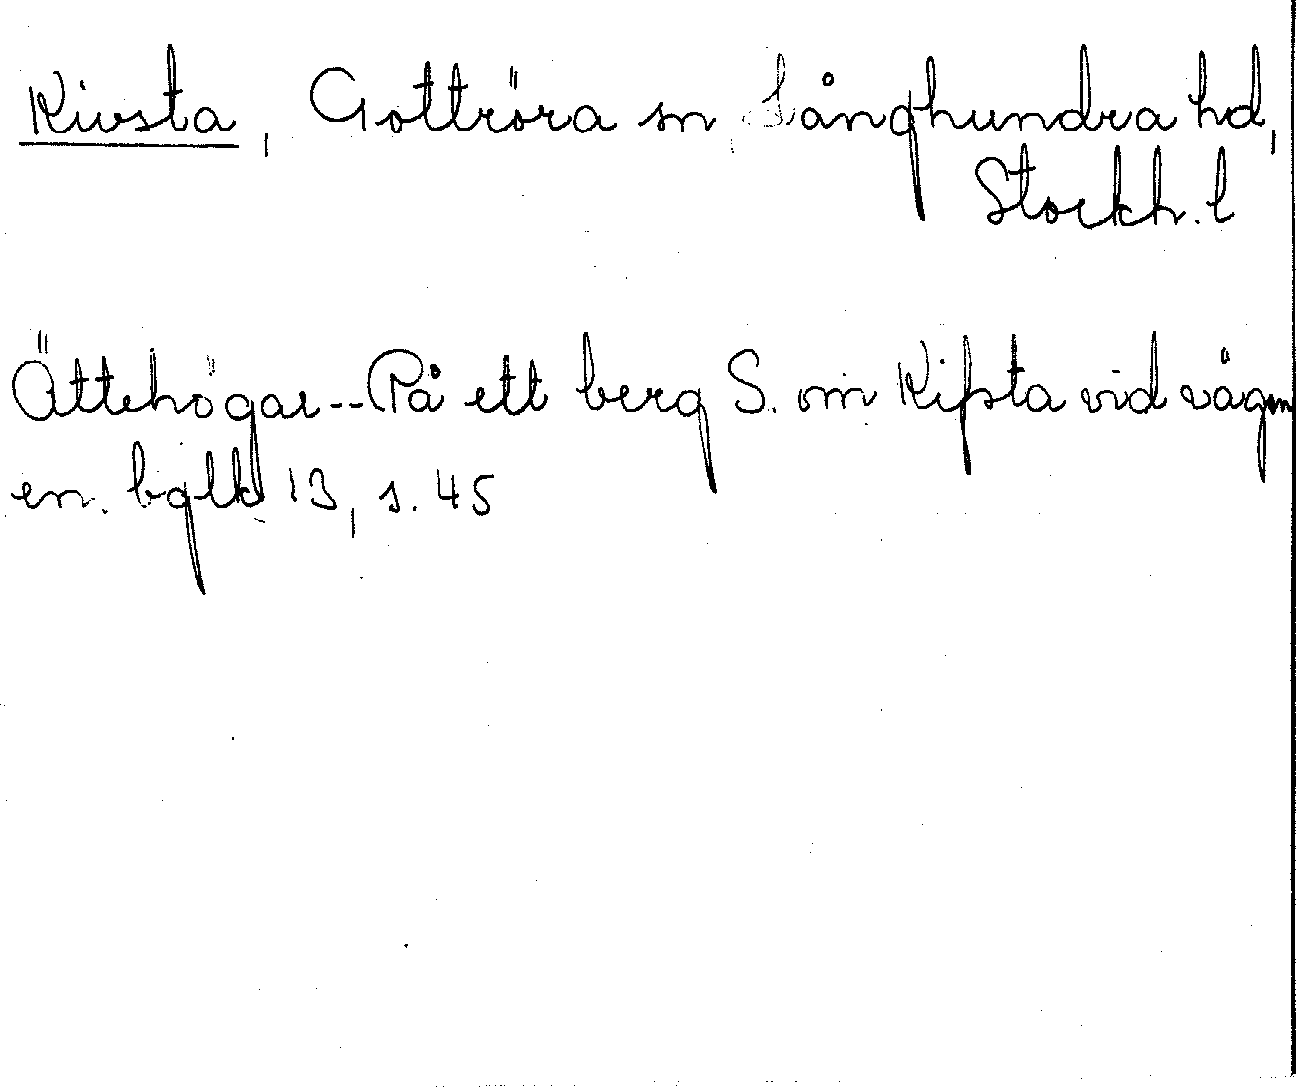 Kivsta, Gottröra sn, Långhundra hd,
Stockh. l
Ättehögar -- På ett berg S. om Kifsta vid vägen
en. bglk 13, s. 45